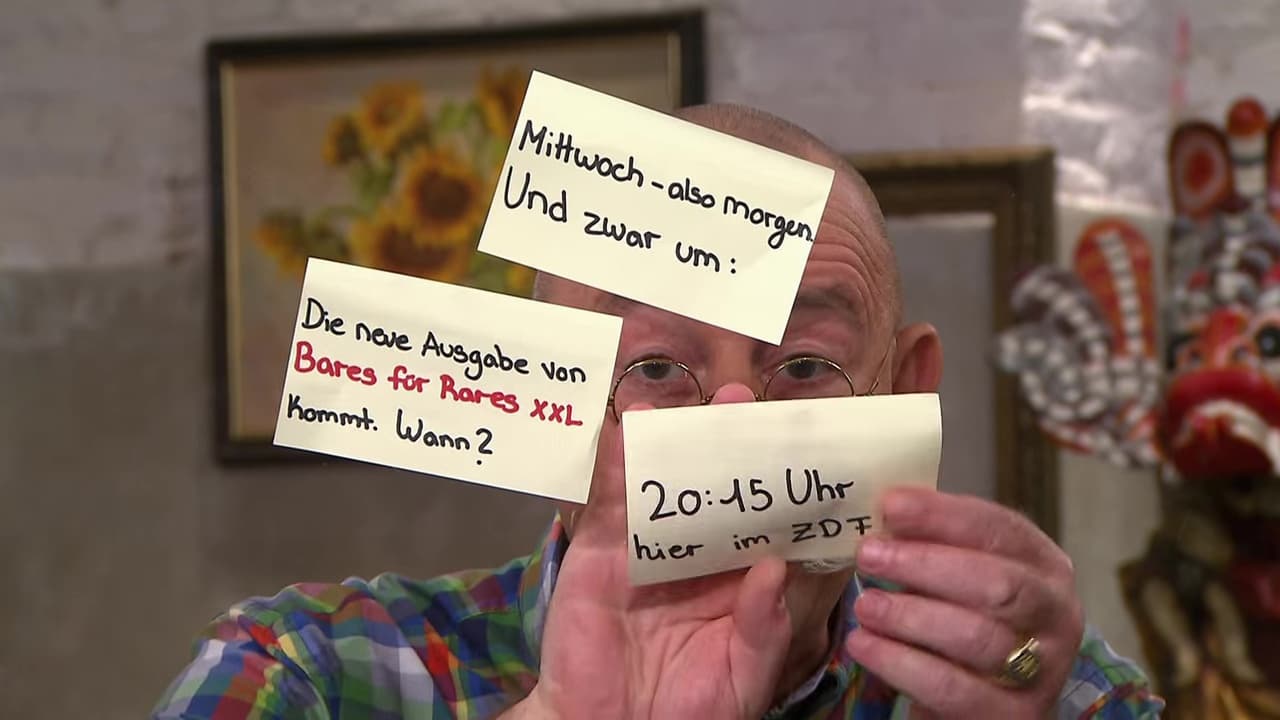 Die neue Ausgabe von
Bares für Rares XXL
kommt. Wann?
Mittwoch - also morgen.
Und zwar um:
20:15 Uhr
hier im ZDF